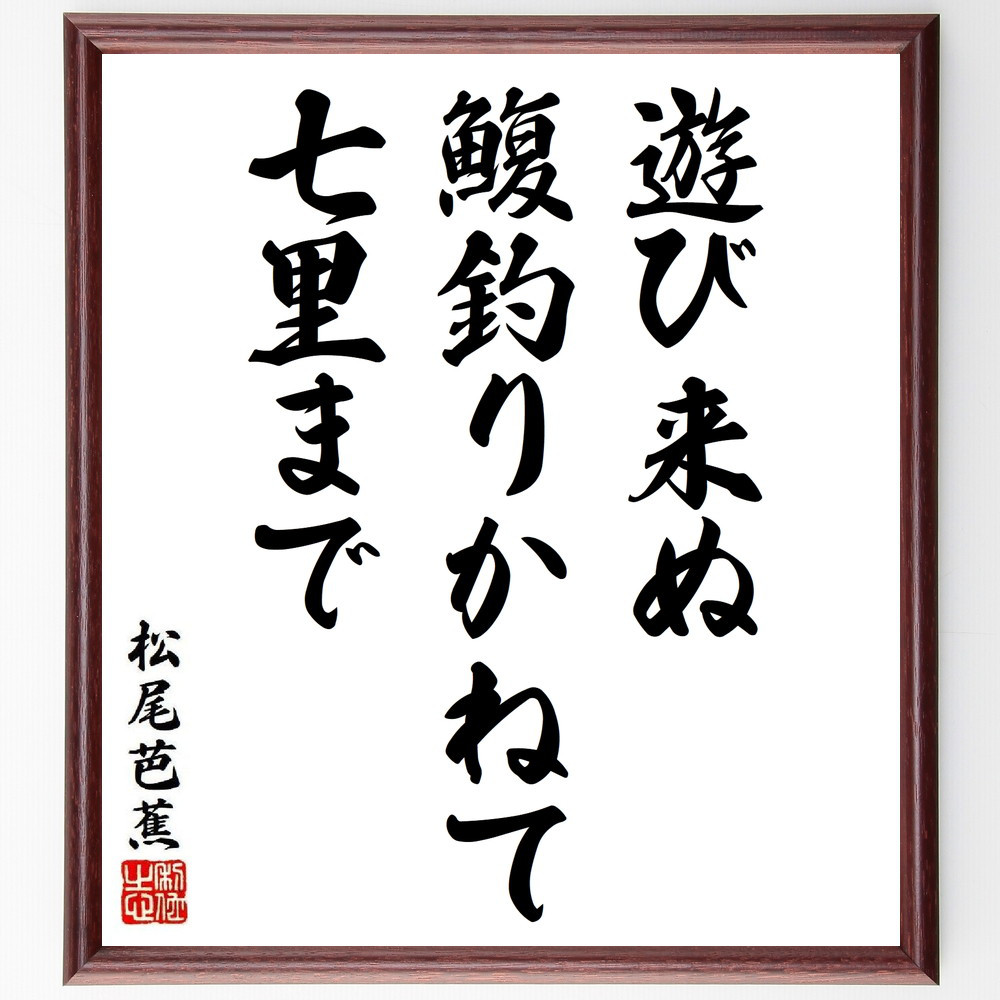 遊び来ぬ
鰒釣りかねて
七里まで
松尾芭蕉